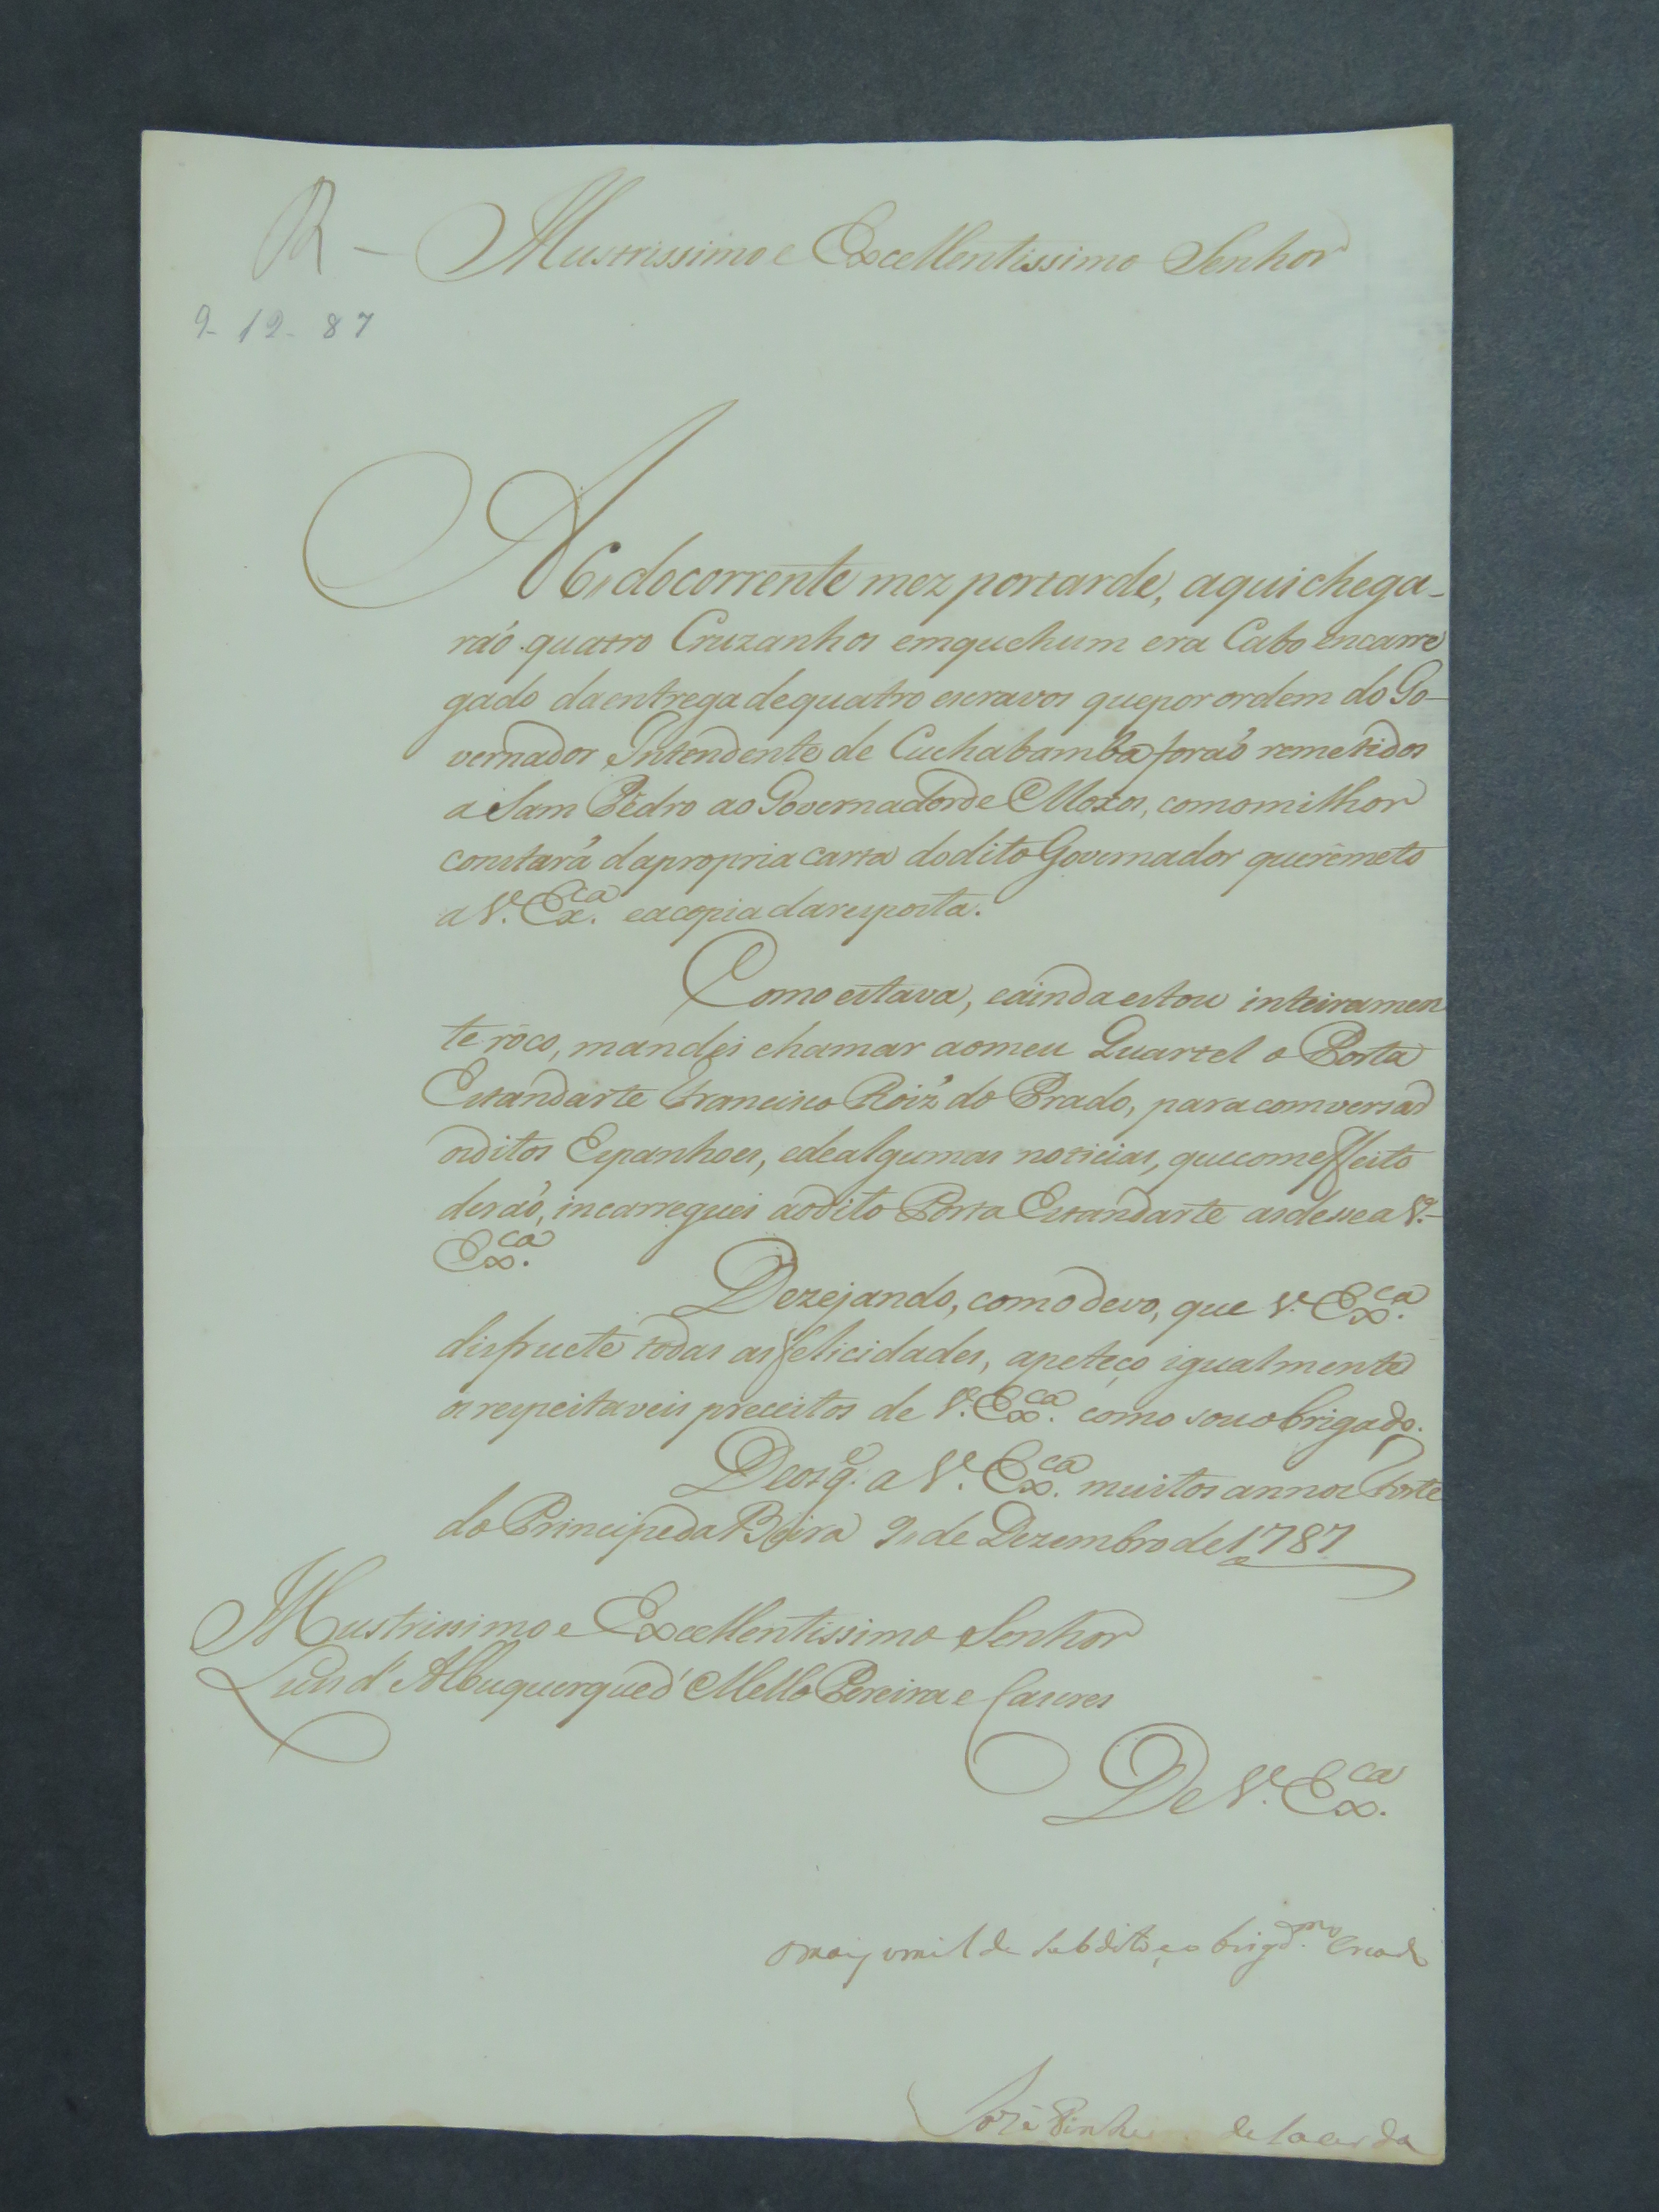 R - Illustrissimo e Excellentissimo Senhor
9-12-87
A 6, do corrente mez por tarde, aqui chega-
ráo quatro Cruzanhos em que hum era Cabo encarre
gado da entrega de quatro escravos que por ordem do Go-
vernador Intendente de Cuchabamba foráo remetidos
a Sam Pedro ao Governador de Moxos, como milhor
constará da propria carta do dito Governador que remeto
a V. Ex.ca e a copia da resposta.
Como estava, e ainda estou inteiramen
te roco, mandei chamar ao meu Quartel o Porta
Estandarte Francisco Roiz do Prado, para comversar
os ditos Espanhoes, e de algumas noticias, que com effeito
deráo, incarreguei ao dito Porta Estandarte as desse a V.-
Ex.ca
Dezejando, como devo, que V. Ex.ca
disfructe todas as felicidades, apeteço igualmente
os respeitaveis preceitos de V. Ex.ca como sou obrigado.
Deos g.e a V. Ex.ca muitos annos Forte
do Principe da Beira 9, de Dezembro de 1787
Illustrissimo e Excellentissimo Senhor
Luis d'Albuquerque d'Mello Pereira e Caseres
De V. Ex.ca
O mais umilde subdito, e obrigd.mo Criado
Jozé Pinhe de Lacerda